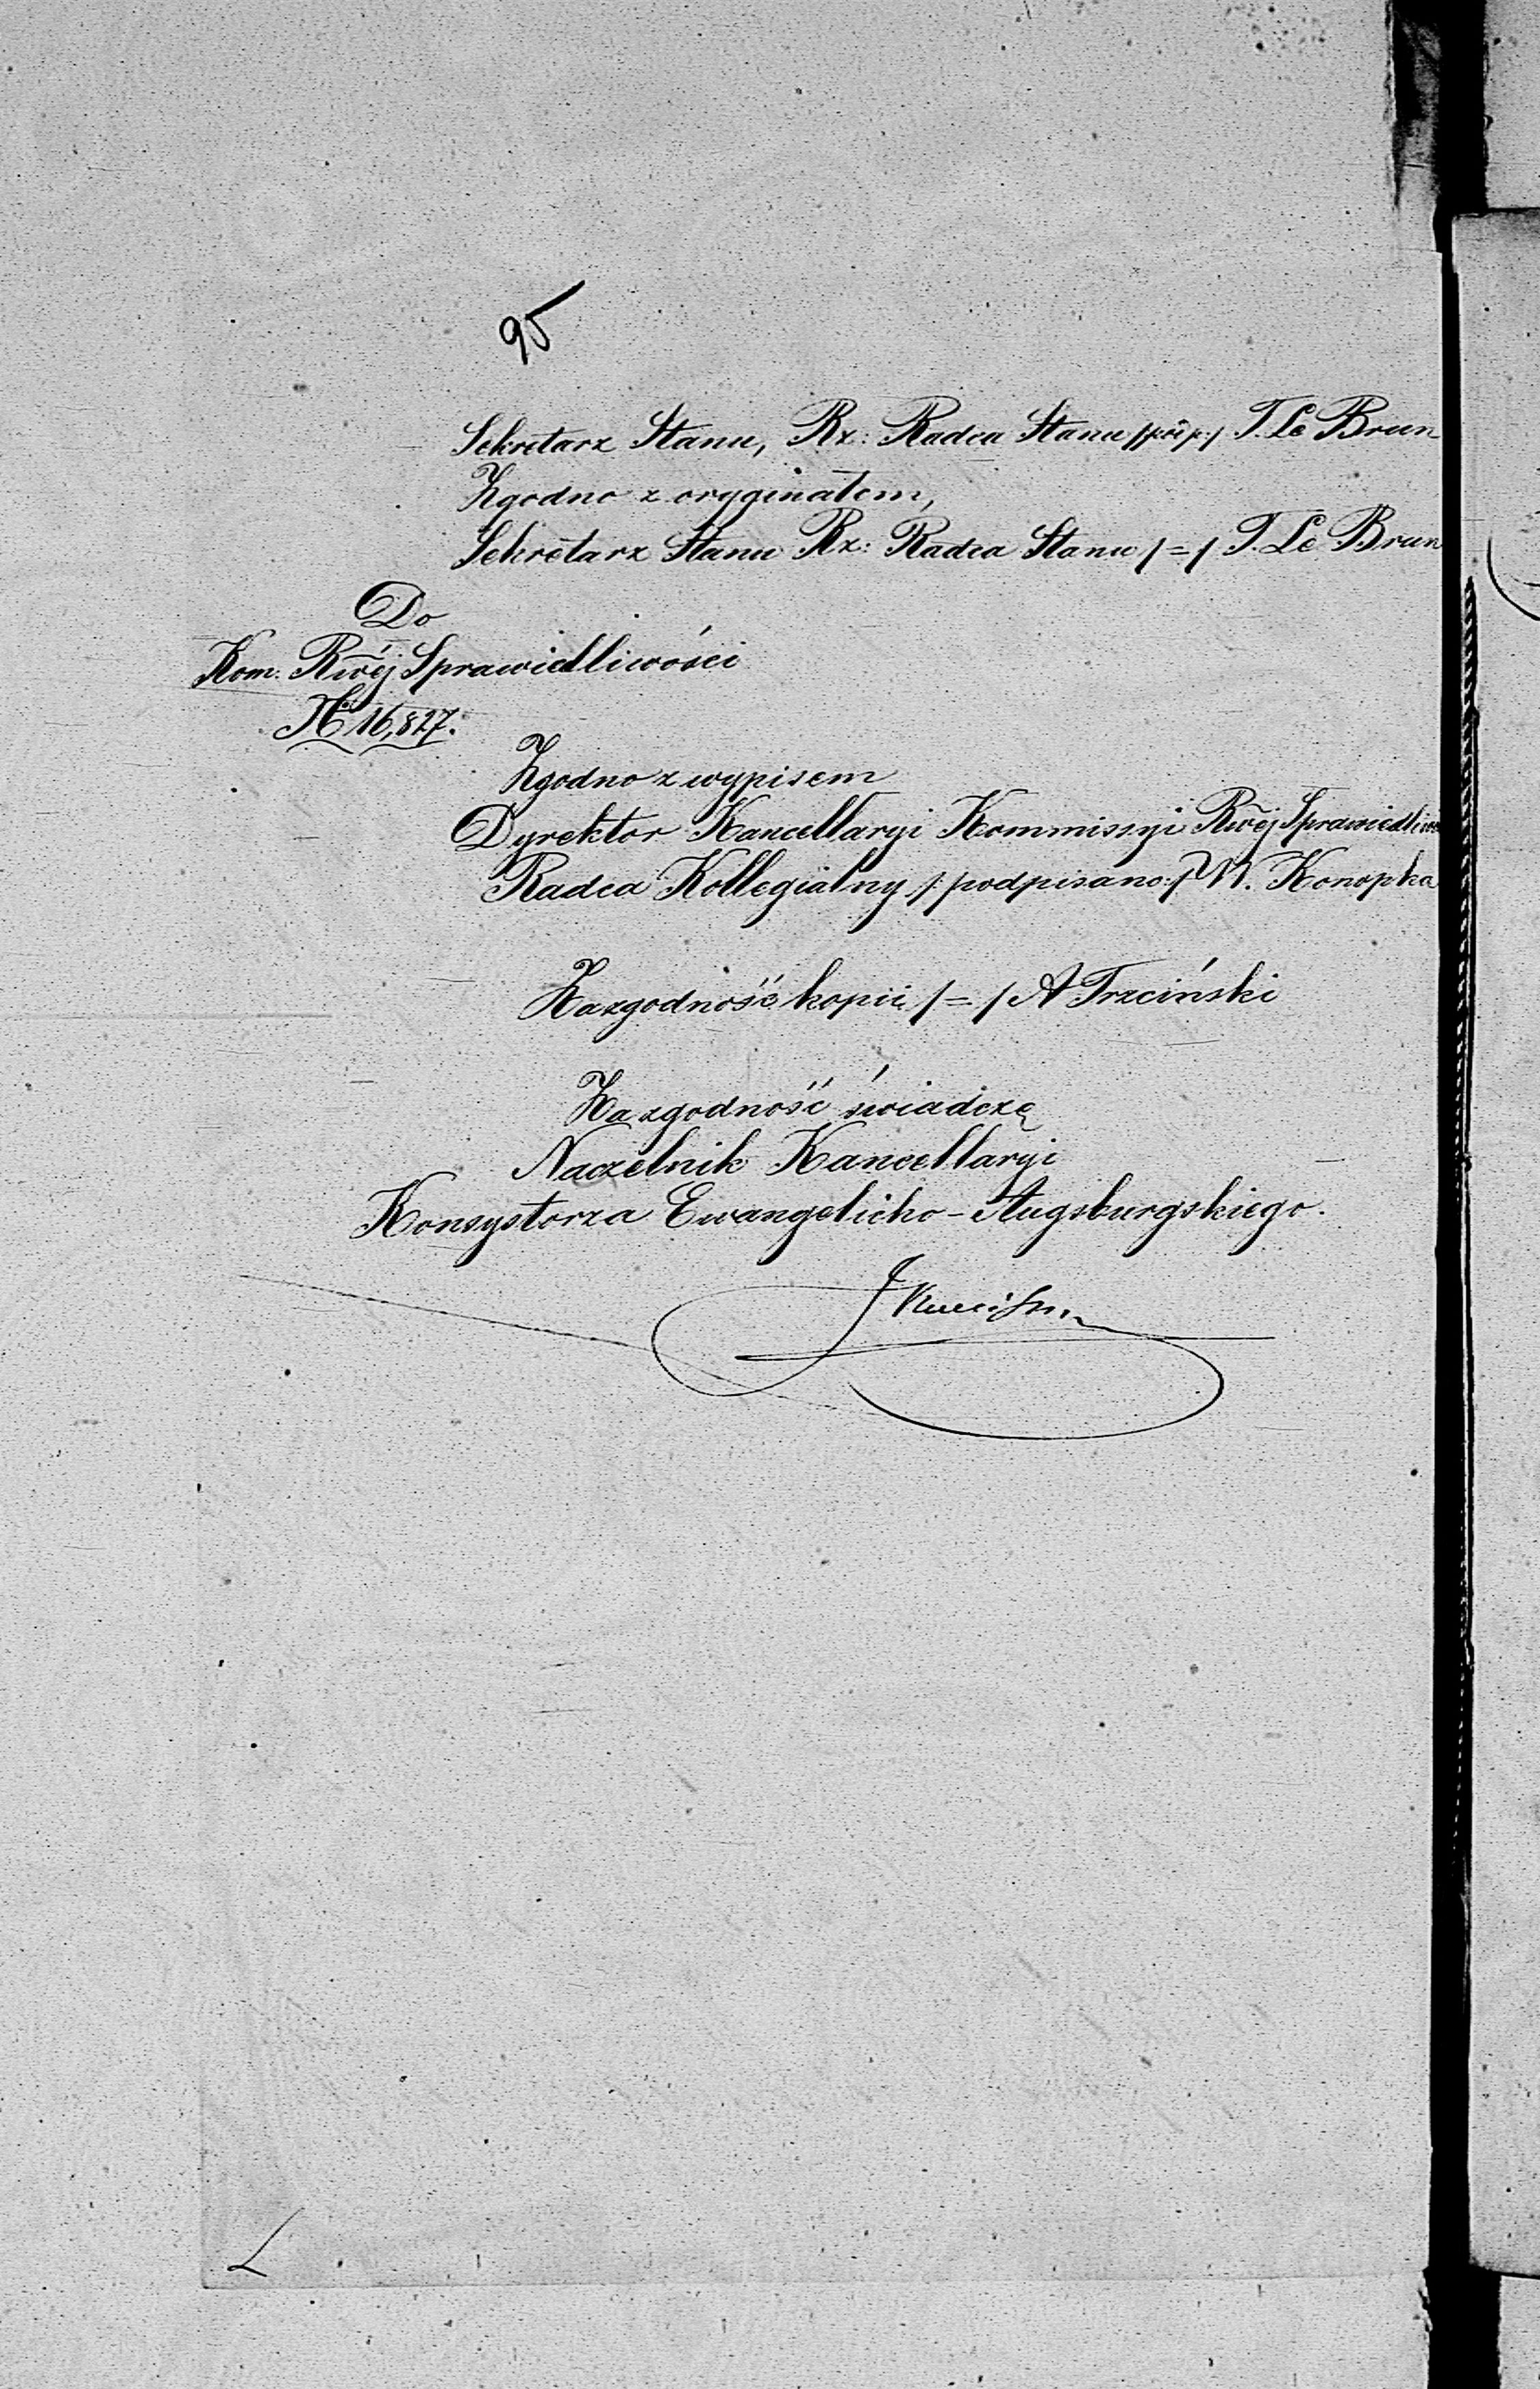 95
Sekretarz Stanu, Rz: Radca Stanu /:pdp:/ T. Le Brun
Zgodno z oryginałem,
Sekretarz Stanu Rz: Radca Stanu /=/ T. Le Brun
Do
Kom. Rwéj Sprawiedliwości
No 16,827.
Zgodno z wypisem
Dyrektor Kancellaryi Kommissyi Rwéj Sprawiedliwo
Radca Kollegialny /:podpisano:/ W. Konopka
Za zgodność kopii /=/ A Trzciński
Za zgodność świadczę
Naczelnik Kancellaryi
Konsystorza Ewangelicko-Augsburgskiego.